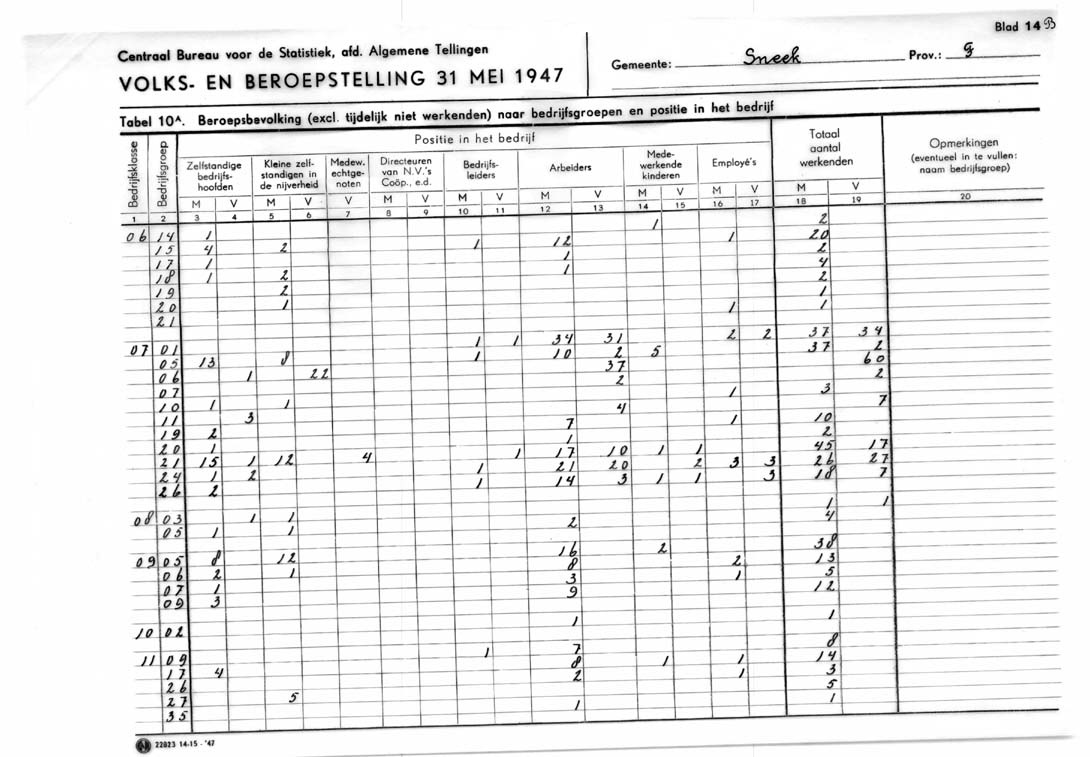 Blad 14 B
Centraal Bureau voor de Statistiek, afd. Algemene Tellingen
VOLKS- EN BEROEPSTELLING 31 MEI 1947
Gemeente: Sneek Prov.: F
Tabel 10A. Beroepsbevolking (excl. tijdelijk niet werkenden) naar bedrijfsgroepen en positie in het bedrijf
Bedrijfsklasse
Bedrijfsgroep
Positie in het bedrijf
Zelfstandige bedrijfs-hoofden
Kleine zelf-standigen in de nijverheid
Medew. echtge-noten
Directeuren van N.V.'s Coöp., e.d.
Bedrijfs-leiders
Arbeiders
Mede-werkende kinderen
Employé's
Totaal aantal werkenden
Opmerkingen (eventueel in te vullen: naam bedrijfsgroep)
M V M V V M V M V M V M V M V M V
1 2 3 4 5 6 7 8 9 10 11 12 13 14 15 16 17 18 19 20
06 14 1 1 2
15 4 2 1 12 1 20
17 1 1 2
18 1 2 1 4
19 2 2
20 1 1
21 1 1
07 01 1 1 34 31 2 2 37 34
05 13 8 1 10 2 5 37 2
06 1 22 37 60
07 2 2
10 1 1 1 3
11 3 4 7
19 2 7 1 10
20 1 1 2
21 15 1 12 4 1 17 10 1 1 45 17
24 1 2 1 21 20 2 3 3 26 27
26 2 1 14 3 1 1 3 18 7
08 03 1 1 1 1
05 1 1 2 4
09 05 8 12 16 2 38
06 2 1 8 2 13
07 1 3 1 5
09 3 9 12
10 02 1 1
11 09 1 7 8
17 4 8 1 1 14
26 2 1 3
27 5 5
35 1 1
22823 14-15 - '47